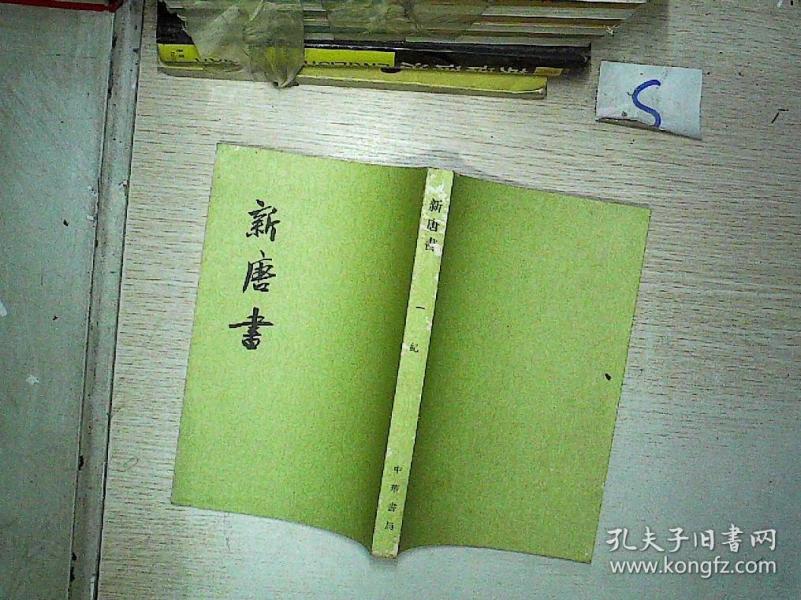 新唐書
新唐書 一 紀 中華書局
S
孔夫子旧书网
www.kongfz.com